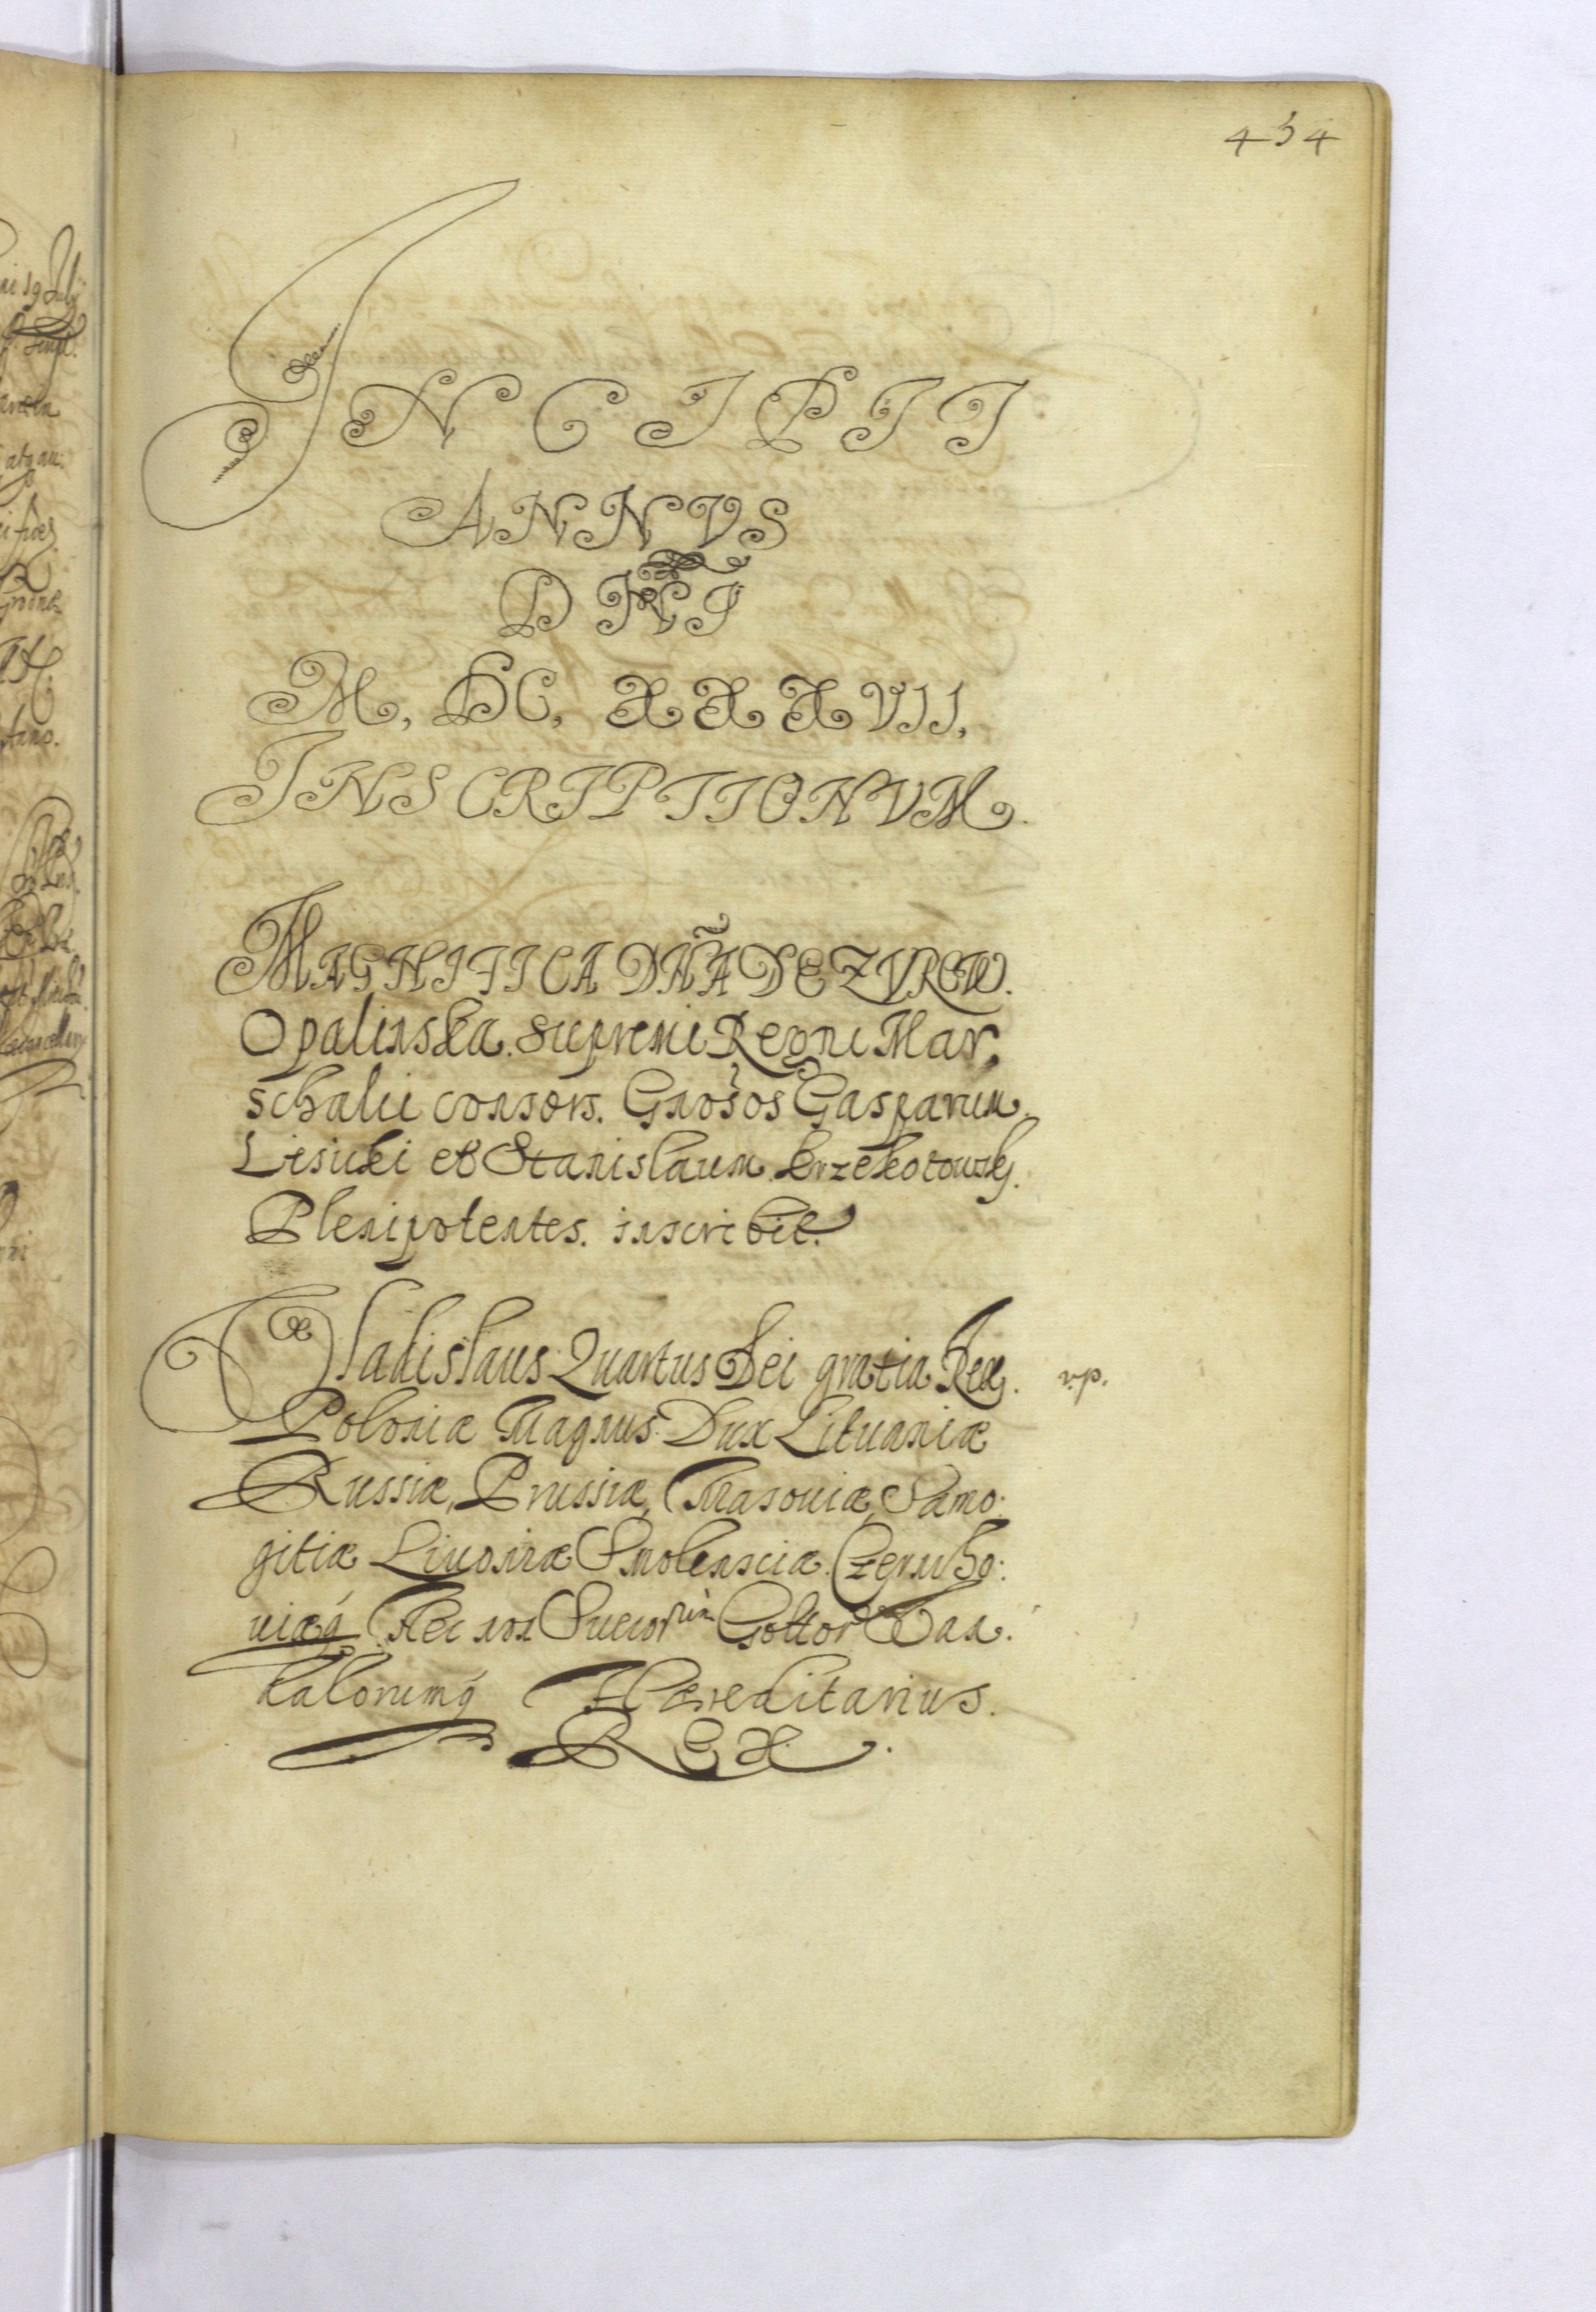 454
INCIPIT
ANNVS
DNI
M, DC, XXXVII,
INSCRIPTIONVM.
MAGNIFICA DNA DE ZVROW.
Opalinska. supremi Regni Mar,
schalii consors. Gnosos Gasparum
Lisicki et Stanislaum. Krzekotowsky.
Plenipotentes. inscribit.
Vladislaus Quartus Dei gratia Rex. v.p.
Poloniæ Magnus Dux Lituaniæ
Russiæ, Prussiæ, Masoviæ, Samo:
gitiæ Livoniæ Smolensciæ Czernicho:
viæq Nec non Suecorum Gottor Van:
dalorumq Hæreditarius.
REX.